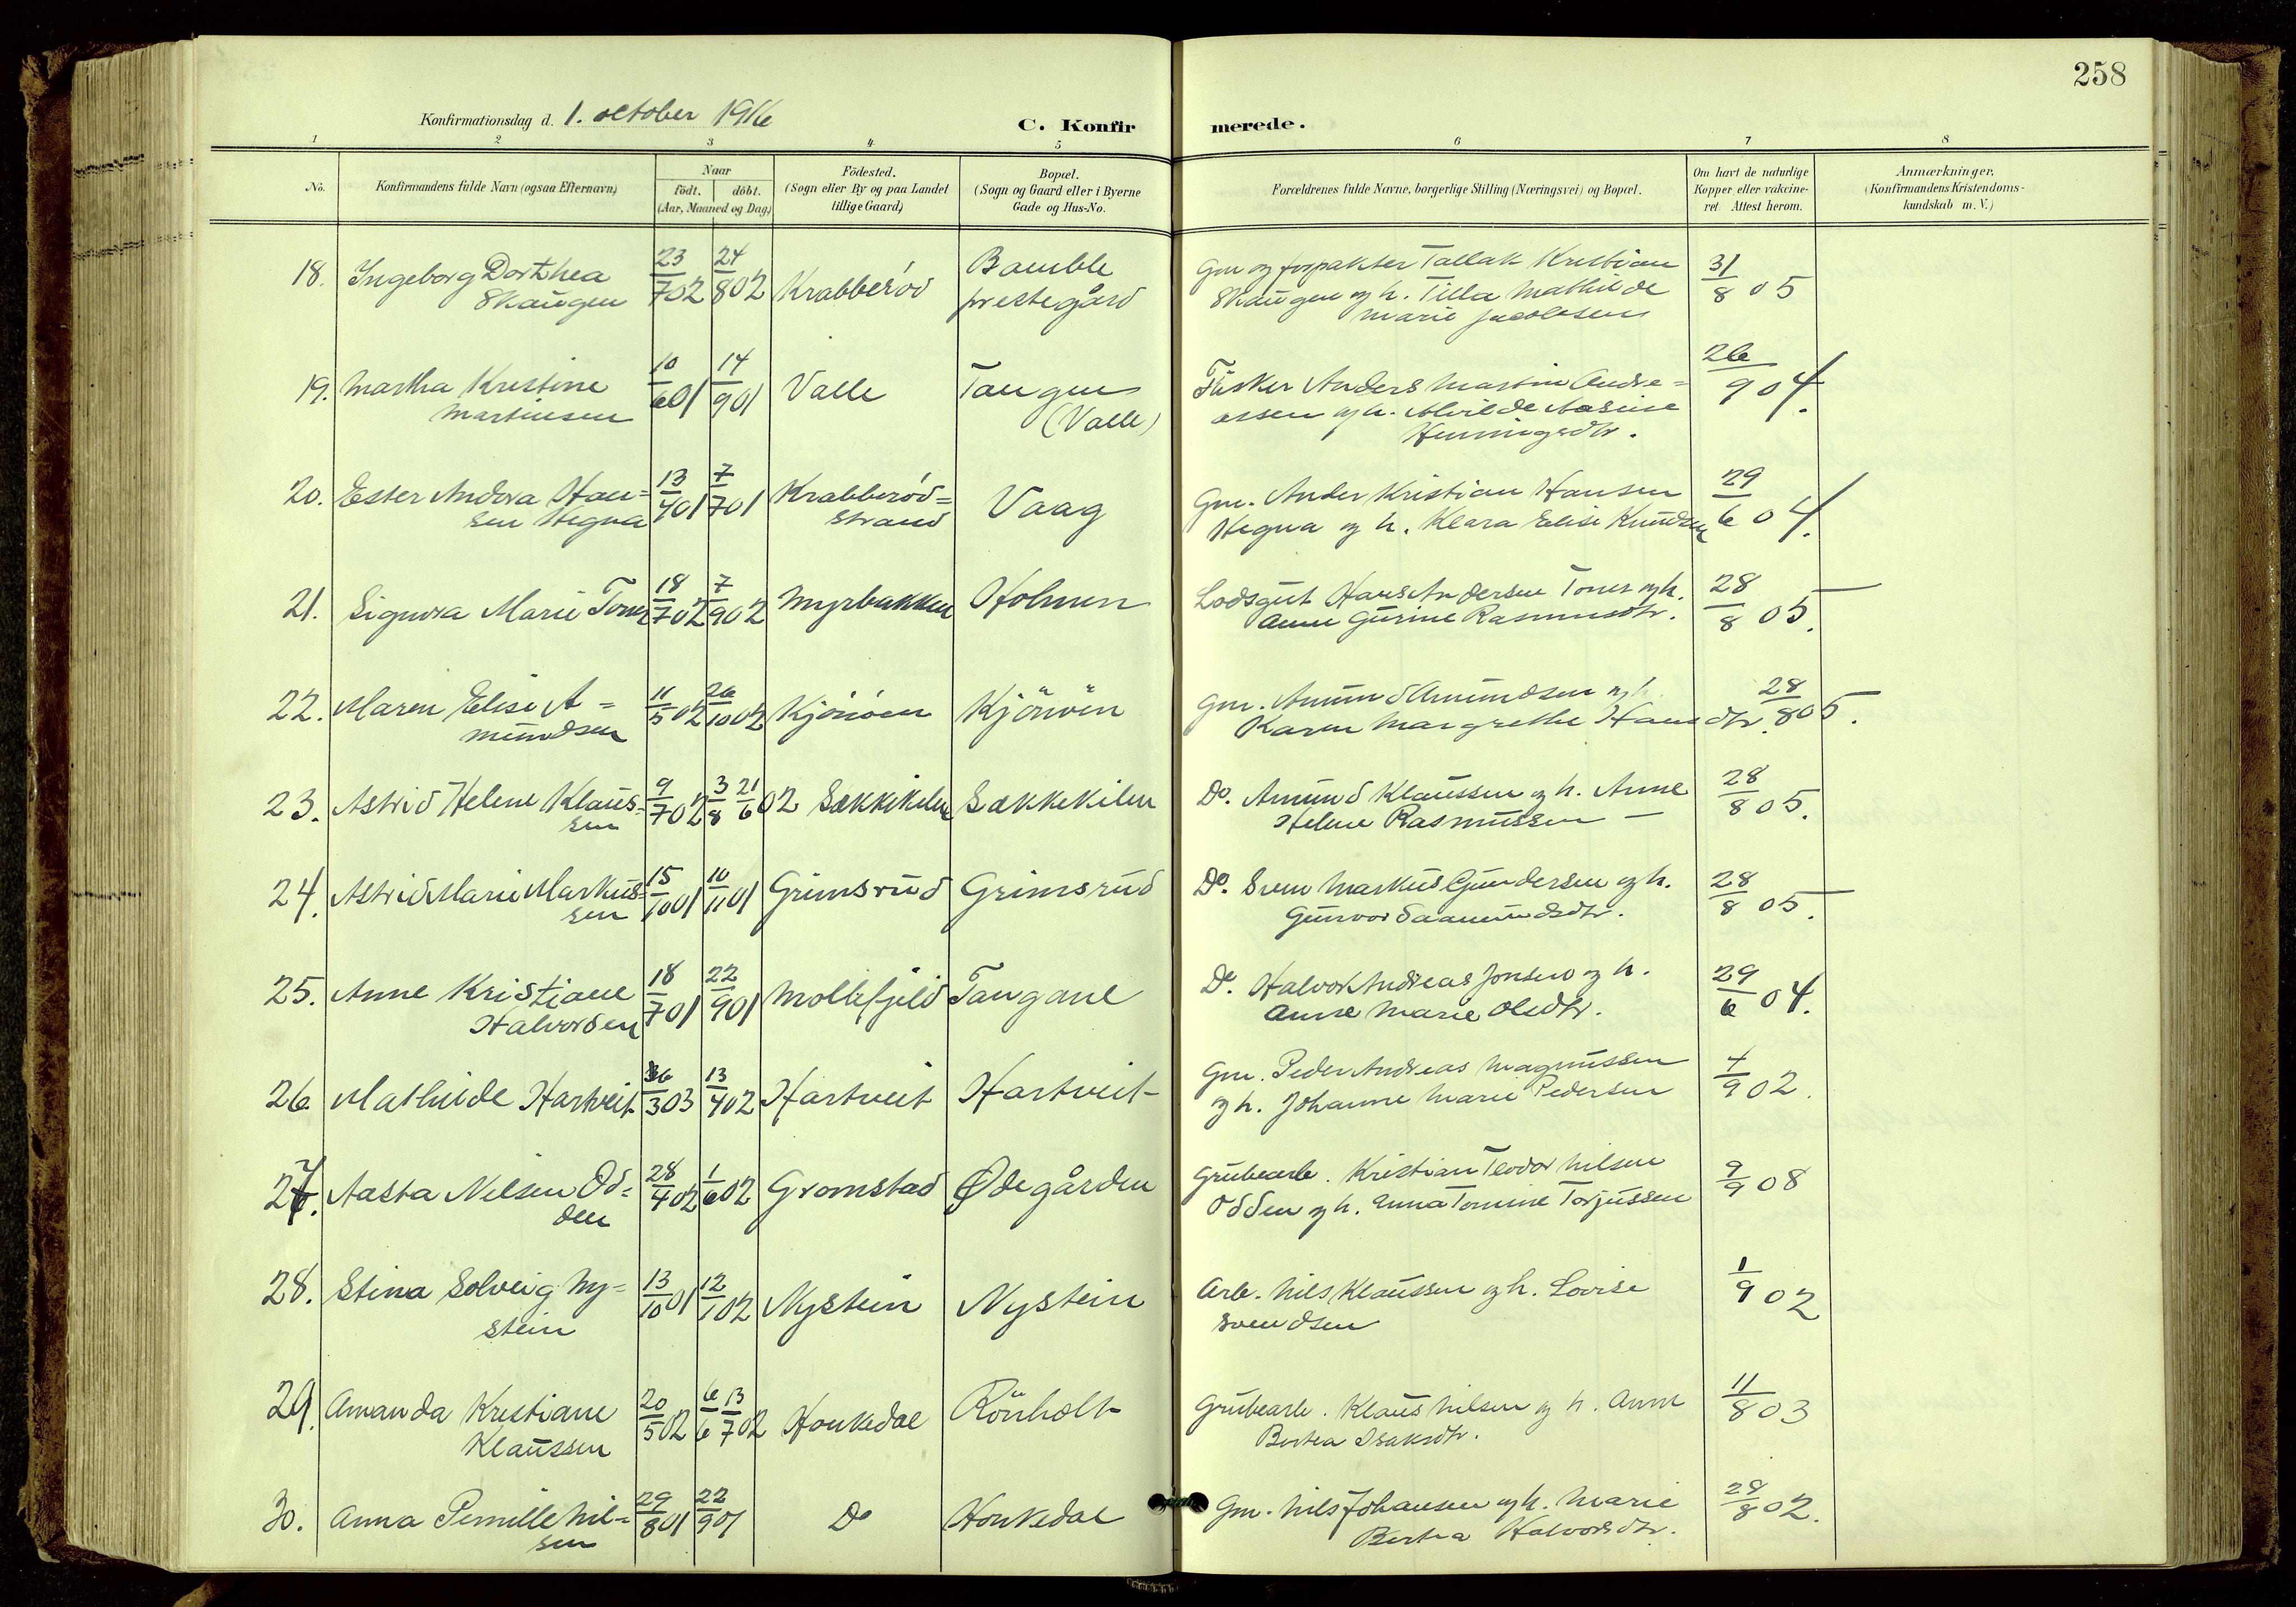 258
Konfirmationsdag d. 1. october 1916
C. Konfirmerede.
1 2 3 4 5 6 7 8
No.
Konfirmandens fulde Navn (ogsaa Efternavn)
Naar
födt. döbt.
(Aar, Maaned og Dag)
Födested.
(Sogn eller By og paa Landet
tillige Gaard)
Bopæl.
(Sogn og Gaard eller i Byerne
Gade og Hus-No.
Forældrenes fulde Navne, borgerlige Stilling (Næringsvei) og Bopæl.
Om havt de naturlige
Kopper eller vakcine-
ret. Attest herom.
Anmærkninger.
(Konfirmandens Kristendoms-
kundskab m. V.)
18. Ingeborg Dorthea 23/7 02 24/8 02 Krabberöd Bamble Gm og forpakter Tallak Kristian 31/8 05
Skaugen prestegård Skaugen og h. Tilla Mathilde
Marie Jacobsen
19. Martha Kristine 10/6 01 14/9 01 Valle Tangen Fisker Anders Martin Andre= 26/9 04.
Martinsen (Valle) assen og h. Alvilde Aasine
Henningsdtr.
20. Ester Andora Han= 13/4 01 7/7 01 Krabberöd= Vaag Gm. Ander Kristian Hansen 29/6 04.
sen Hegna strand Hegna og h. Klara Elise Knudsen
21. Signora Marie Toner 18/7 02 7/9 02 Myrbakken Holmen Lodsgut Hans Andersen Toner og h. 28/8 05.
Anne Gurine Rasmusdtr.
22. Maren Elise A= 11/5 02 26/10 02 Kjönöen Kjönöen Gm. Amund Amundsen og h. 28/8 05.
mundsen Karen Margrethe Hansdtr.
23. Astrid Helene Klaus= 9/7 02 3/8 21/6 02 Sækkekilen Sækkekilen Do. Amund Klaussen og h. Anne 28/8 05.
sen Helene Rasmussen —
24. Astrid Marie Markus= 15/10 01 10/11 01 Grimsrud Grimsrud Do. Sven Markus Gundersen og h. 28/8 05.
sen Gunvor Saamundsdtr.
25. Anne Kristiane 18/7 01 22/9 01 Mollefjeld Tangane Do. Halvor Andreas Jonsen og h. 29/6 04.
Halvorsen Anne Marie Olsdtr.
26. Mathilde Hartveit 3/03 13/4 02 Hartveit Hartveit Gm. Peder Andreas Magnussen 4/9 02.
og h. Johanne Marie Pedersen
27. Aasta Nilsen Od= 28/4 02 1/6 02 Gromstad Ødegården Grubearb. Kristian Teodor Nilsen 9/9 08
den Odden og h. Anna Tomine Torjussen
28. Stina Solveig Ny= 13/10 01 12/1 02 Nystein Nystein Arb. Nils Klaussen og h. Lovise 1/9 02
stein Svendsen
29. Amanda Kristiane 20/5 02 6/6 13/7 02 Honkedal Rönholt Grubearb. Klaus Nilsen og h. Anne 11/8 03
Klaussen Bertea Isaksdtr.
30. Anna Pernille Nil= 29/8 01 22/9 01 Do Honkedal Gm. Nils Johansen og h. Marie 28/8 02.
sen Bertea Halvorsdtr.